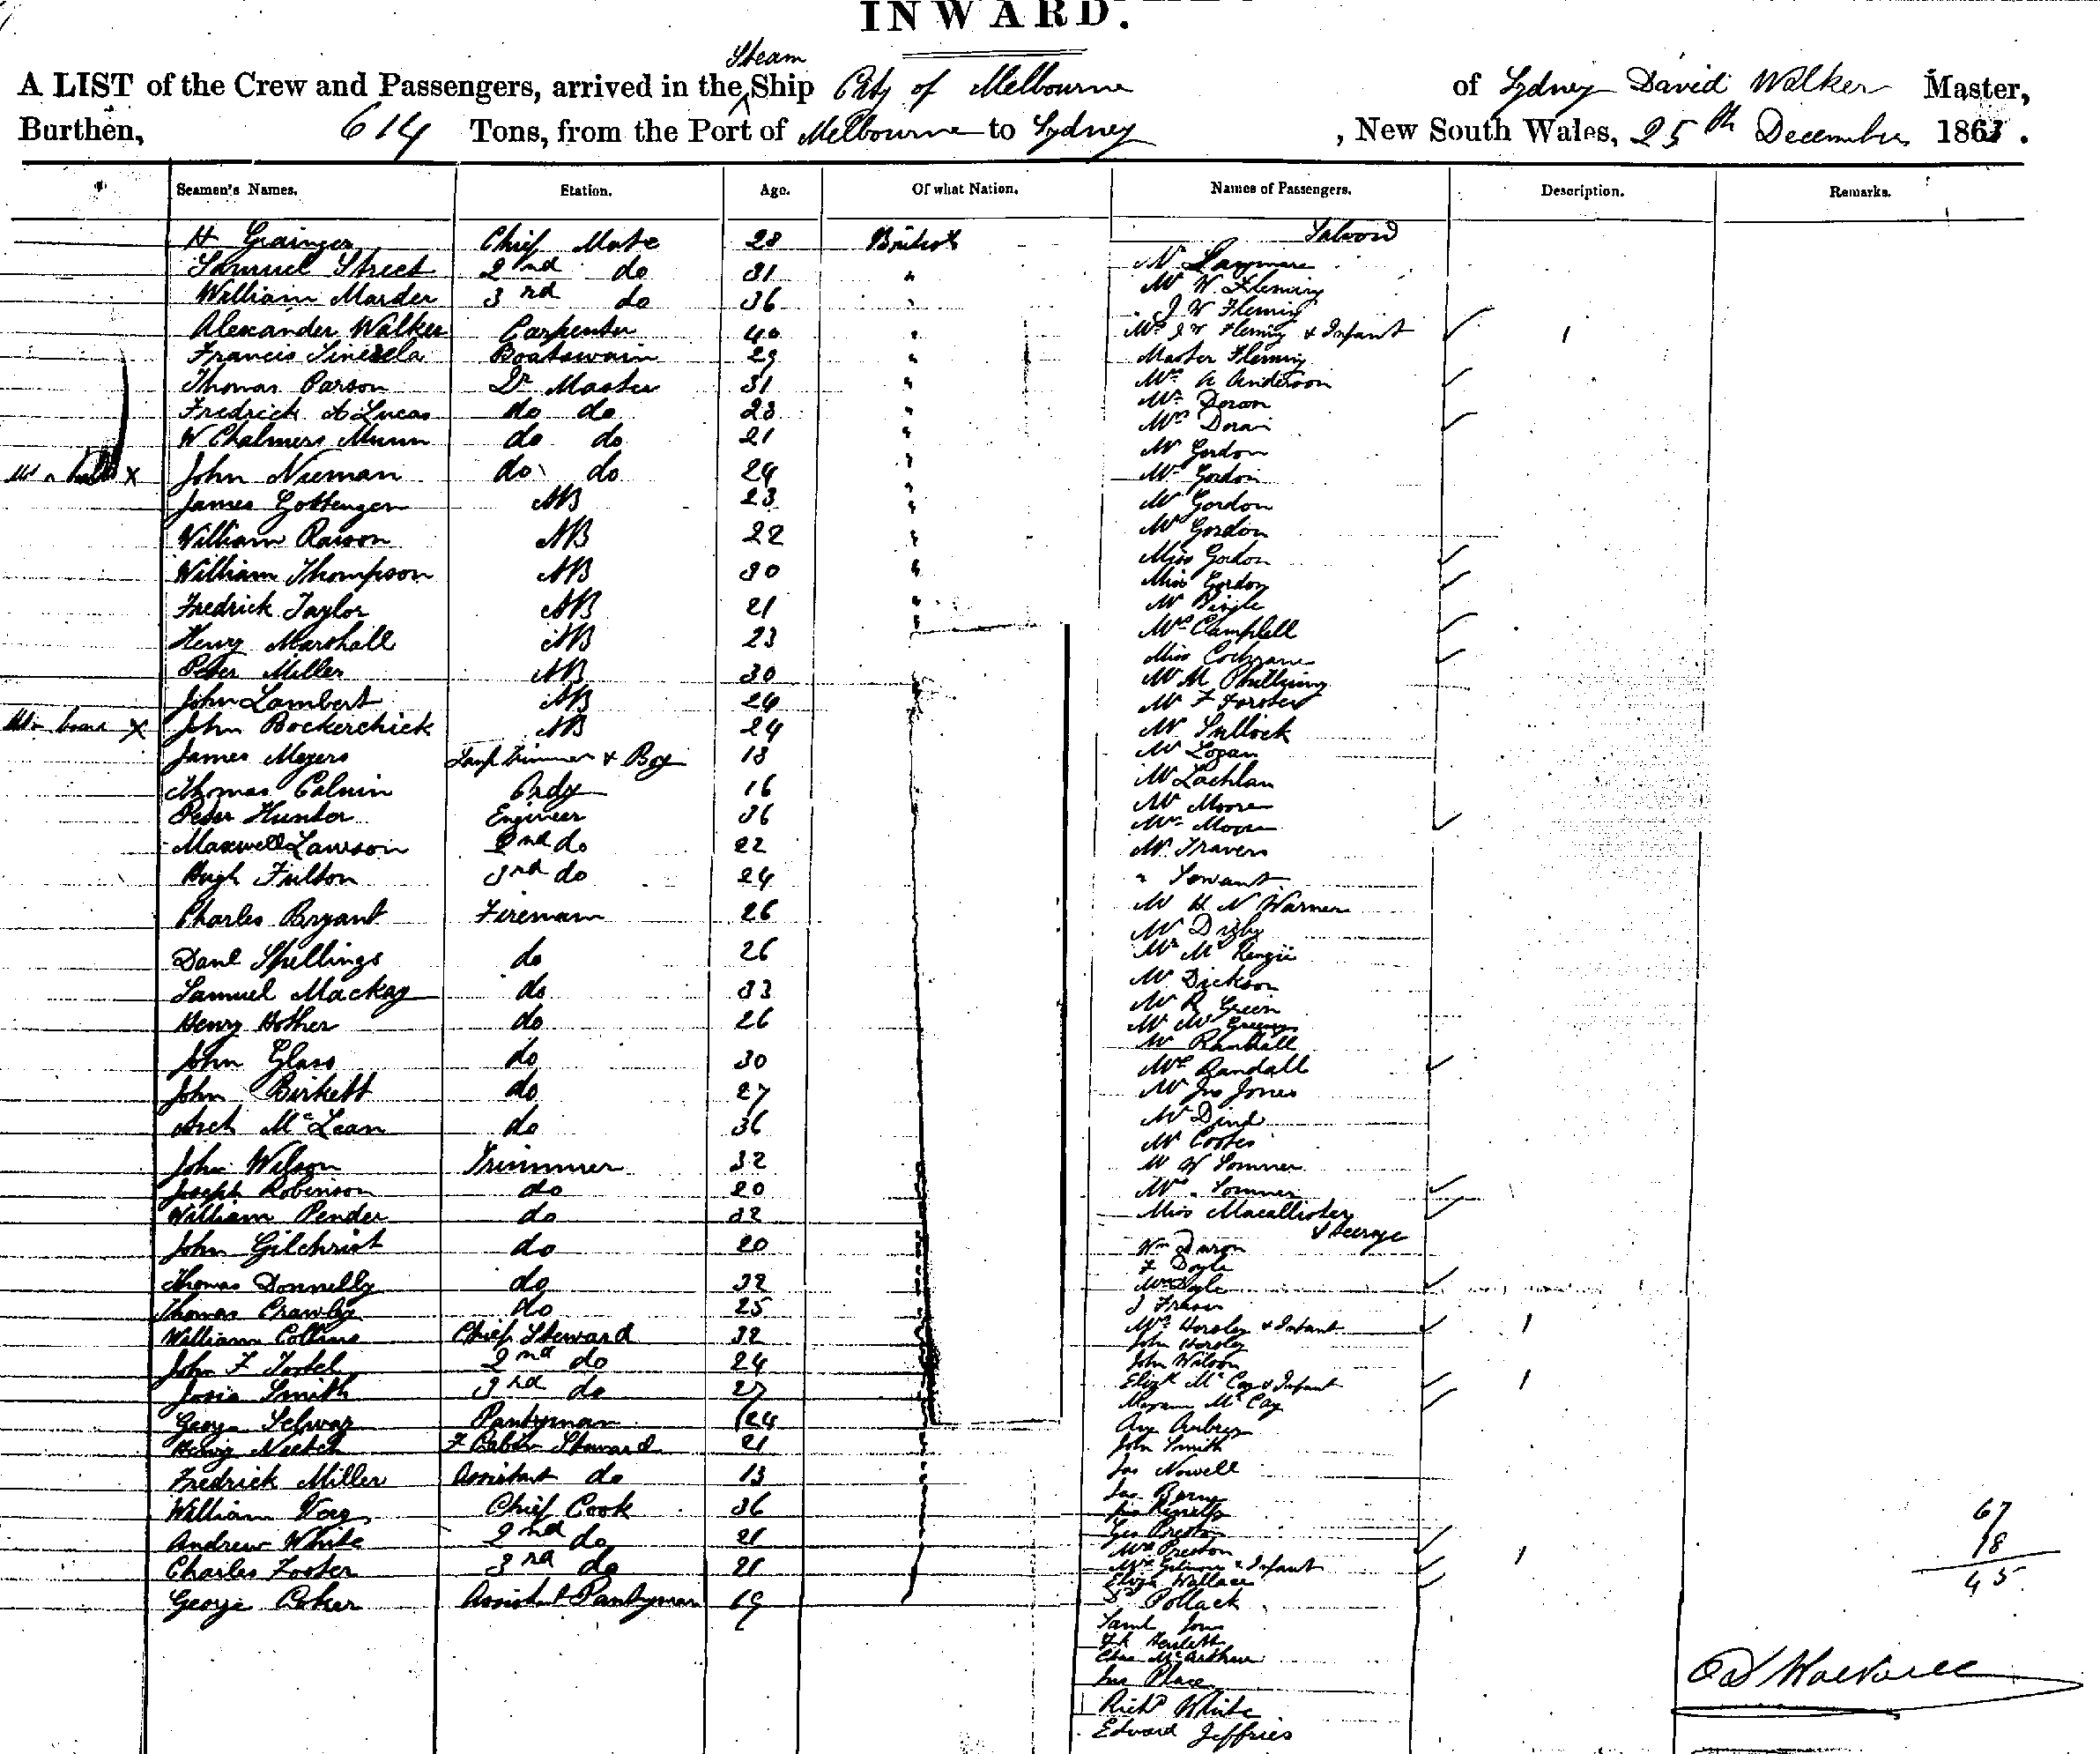 INWARD.
Steam
A LIST of the Crew and Passengers, arrived in the Ship City of Melbourne of Sydney David Walker Master,
Burthen, 614 Tons, from the Port of Melbourne to Sydney, New South Wales, 25th December 1863.
Seamen's Names. Station. Age. Of what Nation. Names of Passengers. Description. Remarks.
H Grainger Chief Mate 28 British
Samuel Street 2nd do 31 "
William Marder 3rd do 36 "
Alexander Walker Carpenter 40 "
Francis Boatswain 29 "
Thomas Parson Qr Master 31 "
Fredrick A Lucas do do 23 "
W Chalmers Munn do do 21 "
X John Nieman do do 24 "
James Gottenger AB 23 "
William Rawson AB 22 "
William Thompson AB 30 "
Fredrick Taylor AB 21 "
Henry Marshall AB 23
Peter Miller AB 30
John Lambert AB 24
X John Bockerchick AB 24
James Meyers Lamp trimmer & Boy 18
Thomas Calvin Ordy 16
Peter Hunter Engineer 36
Maxwell Lawson 2nd do 22
Hugh Fulton 3rd do 24
Charles Bryant Fireman 26
Danl Skellings do 26
Samuel Mackay do 33
Henry Hother do 26
John Glass do 30
John Birkett do 27
Arch McLean do 36
John Wilson Trimmer 32
Joseph Robinson do 20
William Pender do 32
John Gilchrist do 20
Thomas Donnelly do 32
Thomas Crawley do 25
William Collins Chief Steward 32
John F Tootel 2nd do 24
Josia Smith 3rd do 27
George Schwaz Pantryman 24
Henry F Cabin Steward 21
Fredrick Miller Assistant do 13
William Voag Chief Cook 36
Andrew White 2nd do 21
Charles Foster 3rd do 21
George Coker Assist Pantryman 19
Saloon
Mr
Mr W Fleming
J W Fleming
Mrs J W Fleming & Infant
Master Fleming
Mrs A Anderson
Mr Doran
Mrs Doran
Mr Gordon
Mr Gordon
Mr Gordon
Mr Gordon
Miss Gordon
Miss Gordon
Mr Pringle
Mrs Campbell
Miss Cochrane
Mr M Phillimy
Mr F Forster
Mr Sullock
Mr Logan
Mr Lachlan
Mr Moore
Mrs Moore
Mr Travers
" Servant
Mr H N Warner
Mr Digby
Mr McKenzie
Mr Dickson
Mr R Green
Mr Mc
Mr Randall
Mrs Randall
Mr Jno Jones
Mr Dind
Mr Cootes
Mr W Sommer
Mrs Sommer
Miss Macallister
Steerage
Wm Duron
F Doyle
Mrs Doyle
J Fraser
Mrs Horsley & Infant
John Horsley
John Wilson
Elizth McCay & Infant
McCay
Aubrey
John Smith
Jas Nowell
Jas Berne
Geo Preston
Mrs Preston
Mrs Gilmore & Infant
Eliza Wallace
Pollack
Saml Jones
Chas McArthur
Jno Place
Richd White
Edward Jeffries
67
18
45
D Walker